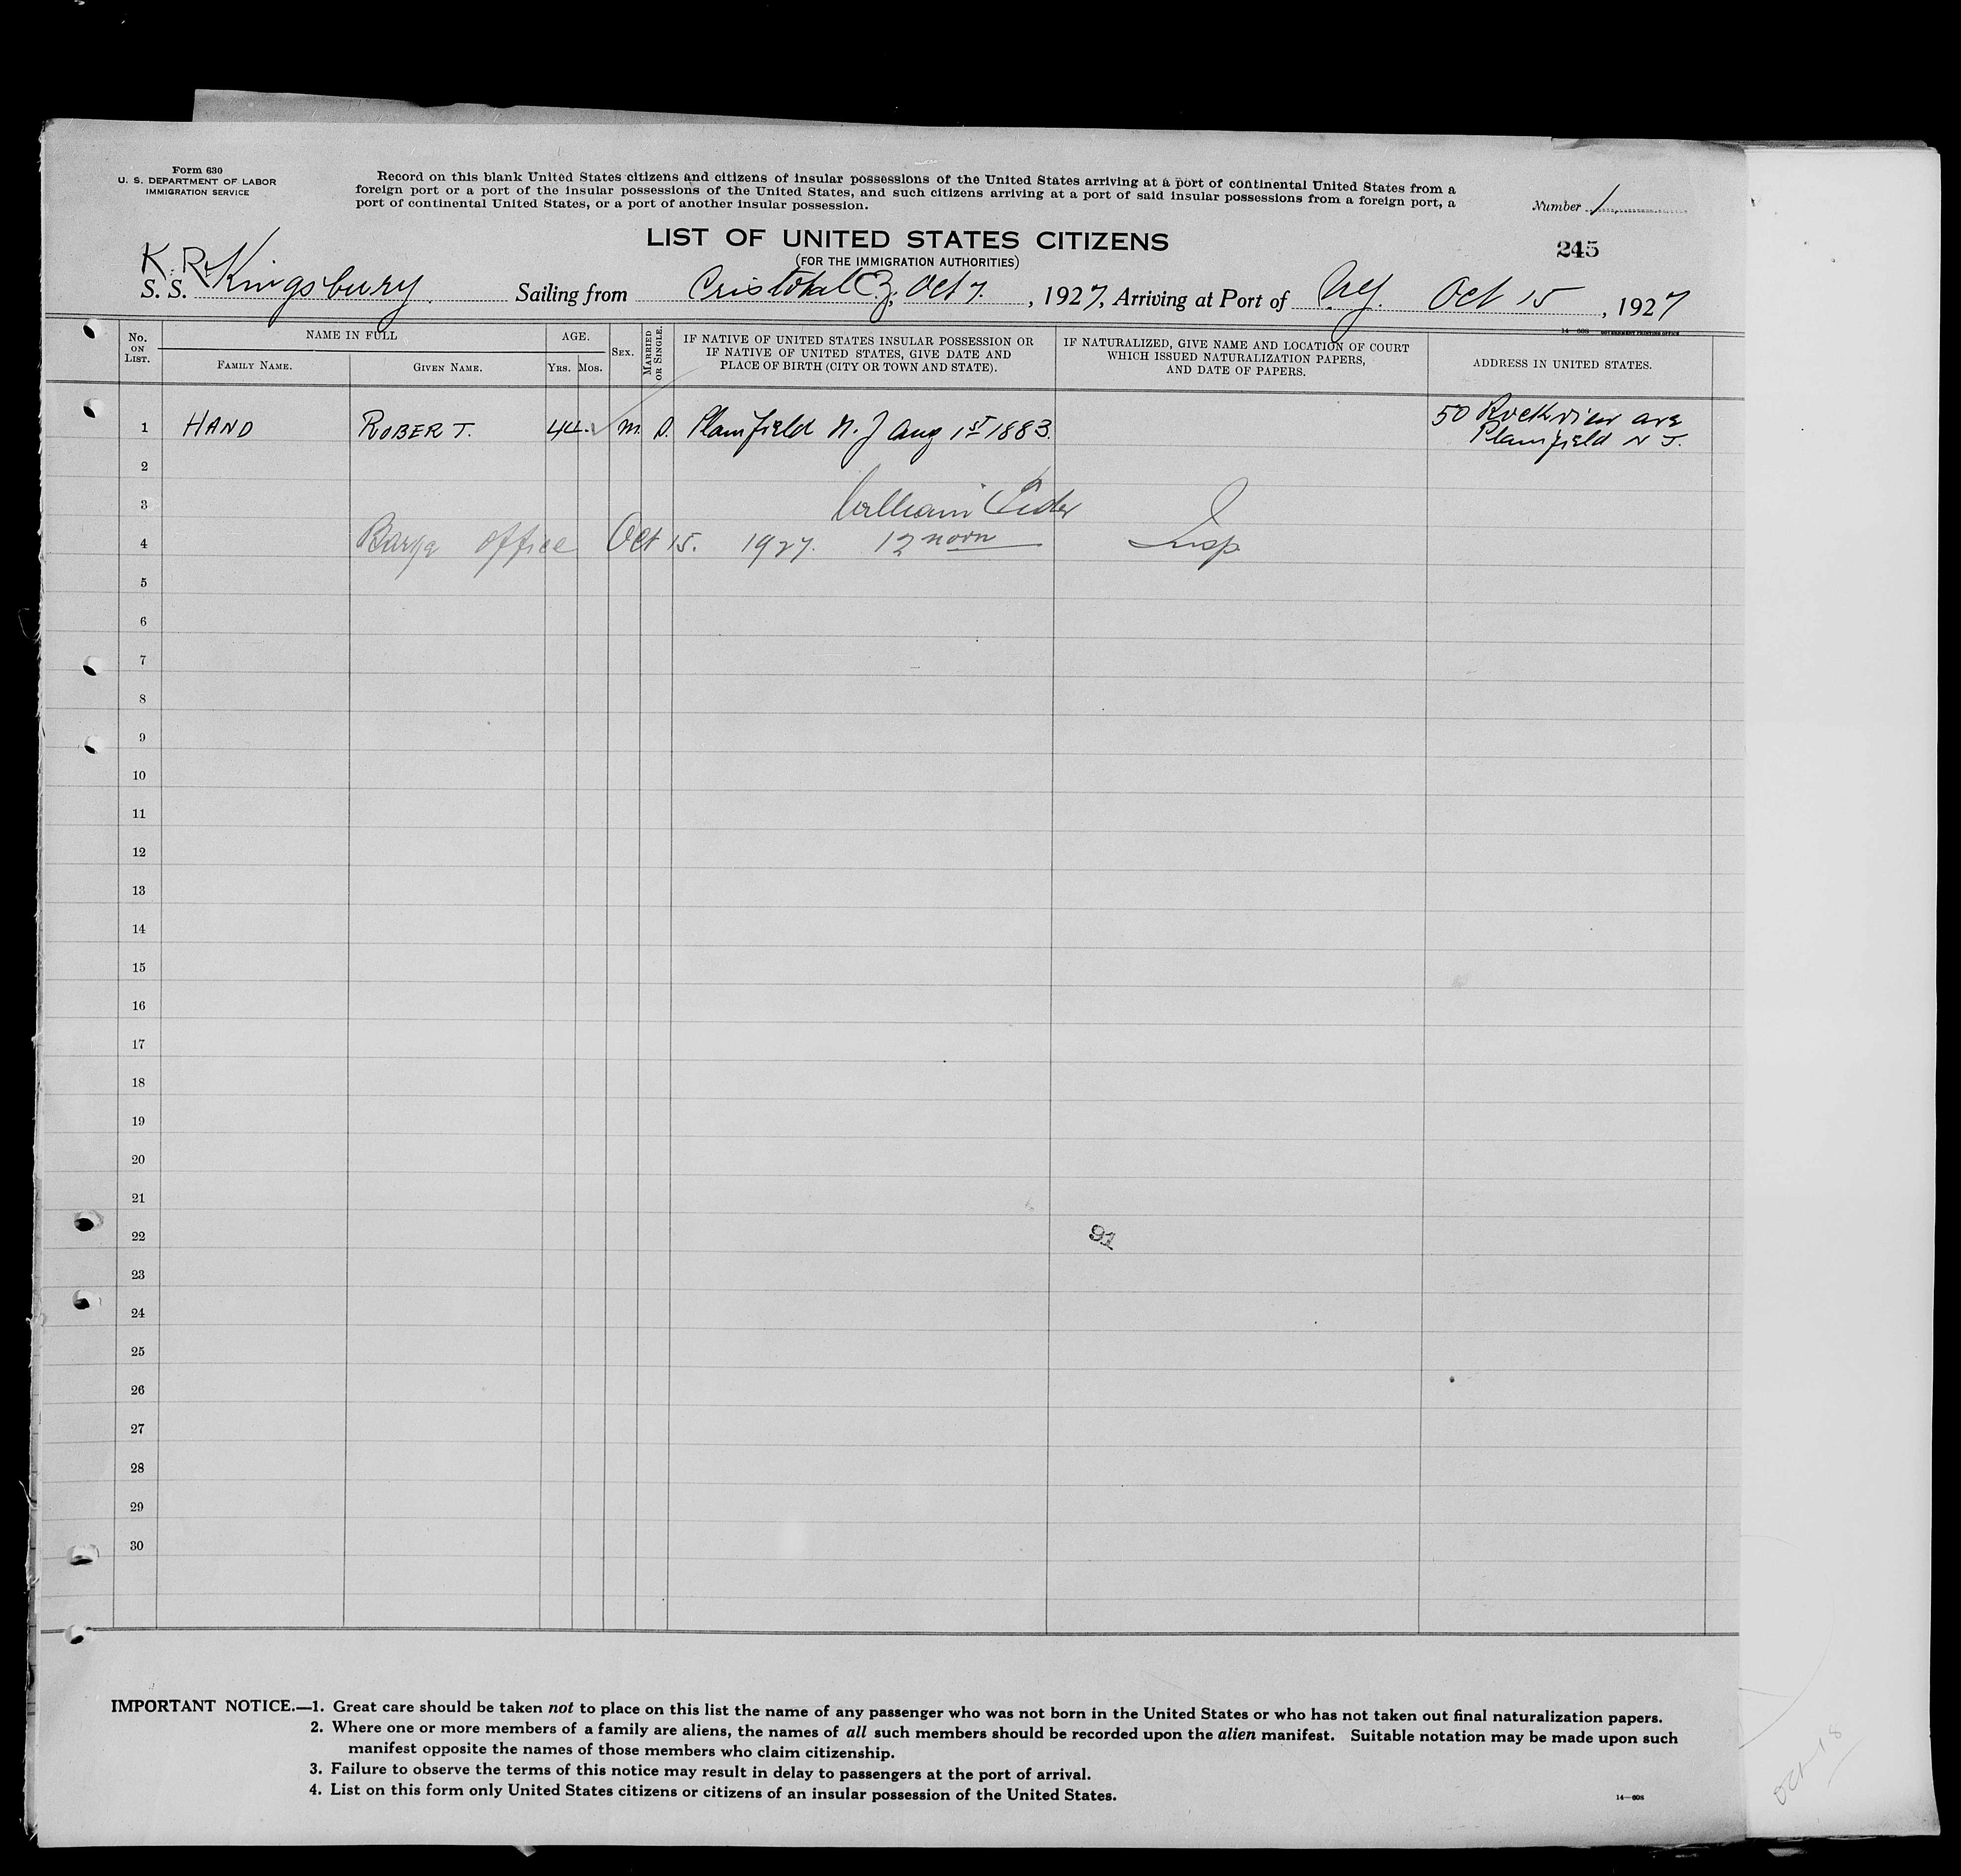 Form 630
U. S. DEPARTMENT OF LABOR
IMMIGRATION SERVICE
Record on this blank United States citizens and citizens of insular possessions of the United States arriving at a port of continental United States from a
foreign port or a port of the insular possessions of the United States, and such citizens arriving at a port of said insular possessions from a foreign port, a
port of continental United States, or a port of another insular possession.
Number 1
LIST OF UNITED STATES CITIZENS
245
(FOR THE IMMIGRATION AUTHORITIES)
S. S. K. R. Kingsbury Sailing from Cristobal C.Z, Oct 7. , 1927, Arriving at Port of N.Y. Oct 15 , 1927
14—608 GOVERNMENT PRINTING OFFICE
No. ON LIST. NAME IN FULL AGE. SEX. MARRIED OR SINGLE. IF NATIVE OF UNITED STATES INSULAR POSSESSION OR IF NATIVE OF UNITED STATES, GIVE DATE AND PLACE OF BIRTH (CITY OR TOWN AND STATE). IF NATURALIZED, GIVE NAME AND LOCATION OF COURT WHICH ISSUED NATURALIZATION PAPERS, AND DATE OF PAPERS. ADDRESS IN UNITED STATES.
FAMILY NAME. GIVEN NAME. YRS. MOS.
1 HAND ROBERT. 44 m. S. Plainfield N. J Aug 1st 1883. 50 Rockview ave
Plainfield N J.
2
3 William
4 Barge office Oct 15. 1927. 12 noon Insp
5
6
7
8
9
10
11
12
13
14
15
16
17
18
19
20
21
22 91
23
24
25
26
27
28
29
30
IMPORTANT NOTICE.—1. Great care should be taken not to place on this list the name of any passenger who was not born in the United States or who has not taken out final naturalization papers.
2. Where one or more members of a family are aliens, the names of all such members should be recorded upon the alien manifest. Suitable notation may be made upon such
manifest opposite the names of those members who claim citizenship.
3. Failure to observe the terms of this notice may result in delay to passengers at the port of arrival.
4. List on this form only United States citizens or citizens of an insular possession of the United States.
14—608
Oct 18